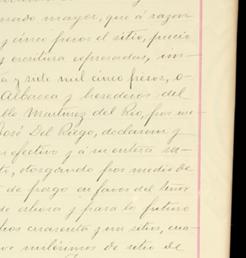 nado mayor, que á razon
y cinco pesos el sitio, precio
escritura expresadas, im
a y siete mil cinco pesos, o
Albacea y herederos del
blo Martinez del Rio, por me
José Del Riego, declaran y
en efectivo y á su entera sa
otorgando por medio de
de pago en favor del Señor
de ahora y para lo futuro
cuarenta y un sitios, cua
milésimos de sitio de